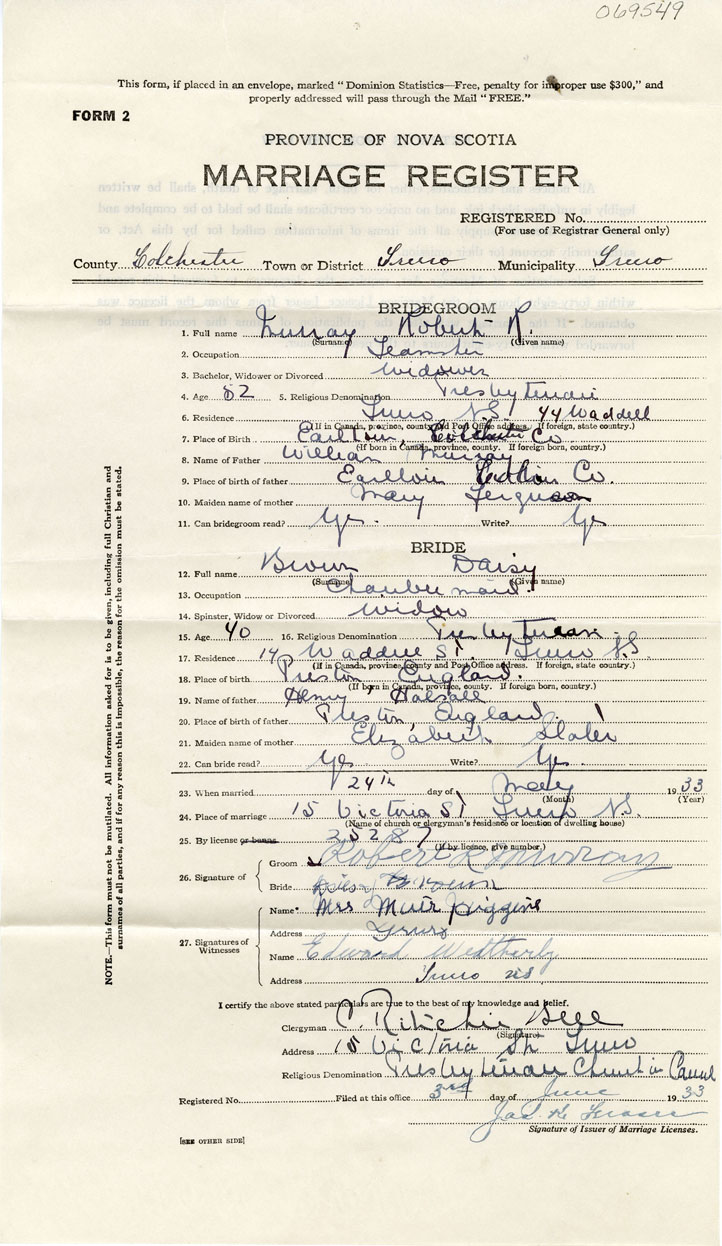 069549
This form, if placed in an envelope, marked "Dominion Statistics—Free, penalty for improper use $300," and
properly addressed will pass through the Mail "FREE."
FORM 2
PROVINCE OF NOVA SCOTIA
MARRIAGE REGISTER
REGISTERED No.
(For use of Registrar General only)
County Colchester Town or District Truro Municipality Truro
BRIDEGROOM
1. Full name Murray Robert R.
(Surname) (Given name)
2. Occupation Teamster
3. Bachelor, Widower or Divorced Widower
4. Age 52 5. Religious Denomination Presbyterian
6. Residence Truro NS 44 Waddell
(If in Canada, province, county and Post Office address. If foreign, state country.)
7. Place of Birth Earltown, Colchester Co
(If born in Canada, province, county. If foreign born, country.)
8. Name of Father William Murray
9. Place of birth of father Earltown Co.
10. Maiden name of mother Mary Ferguson
11. Can bridegroom read? Yes. Write? Yes
BRIDE
12. Full name Brown Daisy
(Surname) (Given name)
13. Occupation Chambermaid.
14. Spinster, Widow or Divorced Widow
15. Age 40 16. Religious Denomination Presbyterian
17. Residence 14 Waddell St. Truro N.S.
(If in Canada, province, county and Post Office address. If foreign, state country.)
18. Place of birth Preston England.
(If born in Canada, province, county. If foreign born, country.)
19. Name of father Henry Halsall
20. Place of birth of father Preston, England.
21. Maiden name of mother Elizabeth Slater
22. Can bride read? Yes Write? Yes.
23. When married 24th day of May 1933
(Month) (Year)
24. Place of marriage 15 Victoria St Truro N.S.
(Name of church or clergyman's residence or location of dwelling house)
25. By license or banns 25287
(If by licence, give number.)
26. Signature of
Groom Robert R Murray
Bride Brown
27. Signatures of Witnesses
Name Mrs Muir Higgins
Address Truro
Name Edward Wetherby
Address Truro NS.
I certify the above stated particulars are true to the best of my knowledge and belief.
Clergyman C. Ritchie Bell
(Signature)
Address 15 Victoria St Truro
Religious Denomination Presbyterian Church in
Registered No. Filed at this office 3rd day of June 1933
Jas. K. Fraser
Signature of Issuer of Marriage Licenses.
[SEE OTHER SIDE]
NOTE.—This form must not be mutilated. All information asked for is to be given, including full Christian and
surnames of all parties, and if for any reason this is impossible, the reason for the omission must be stated.